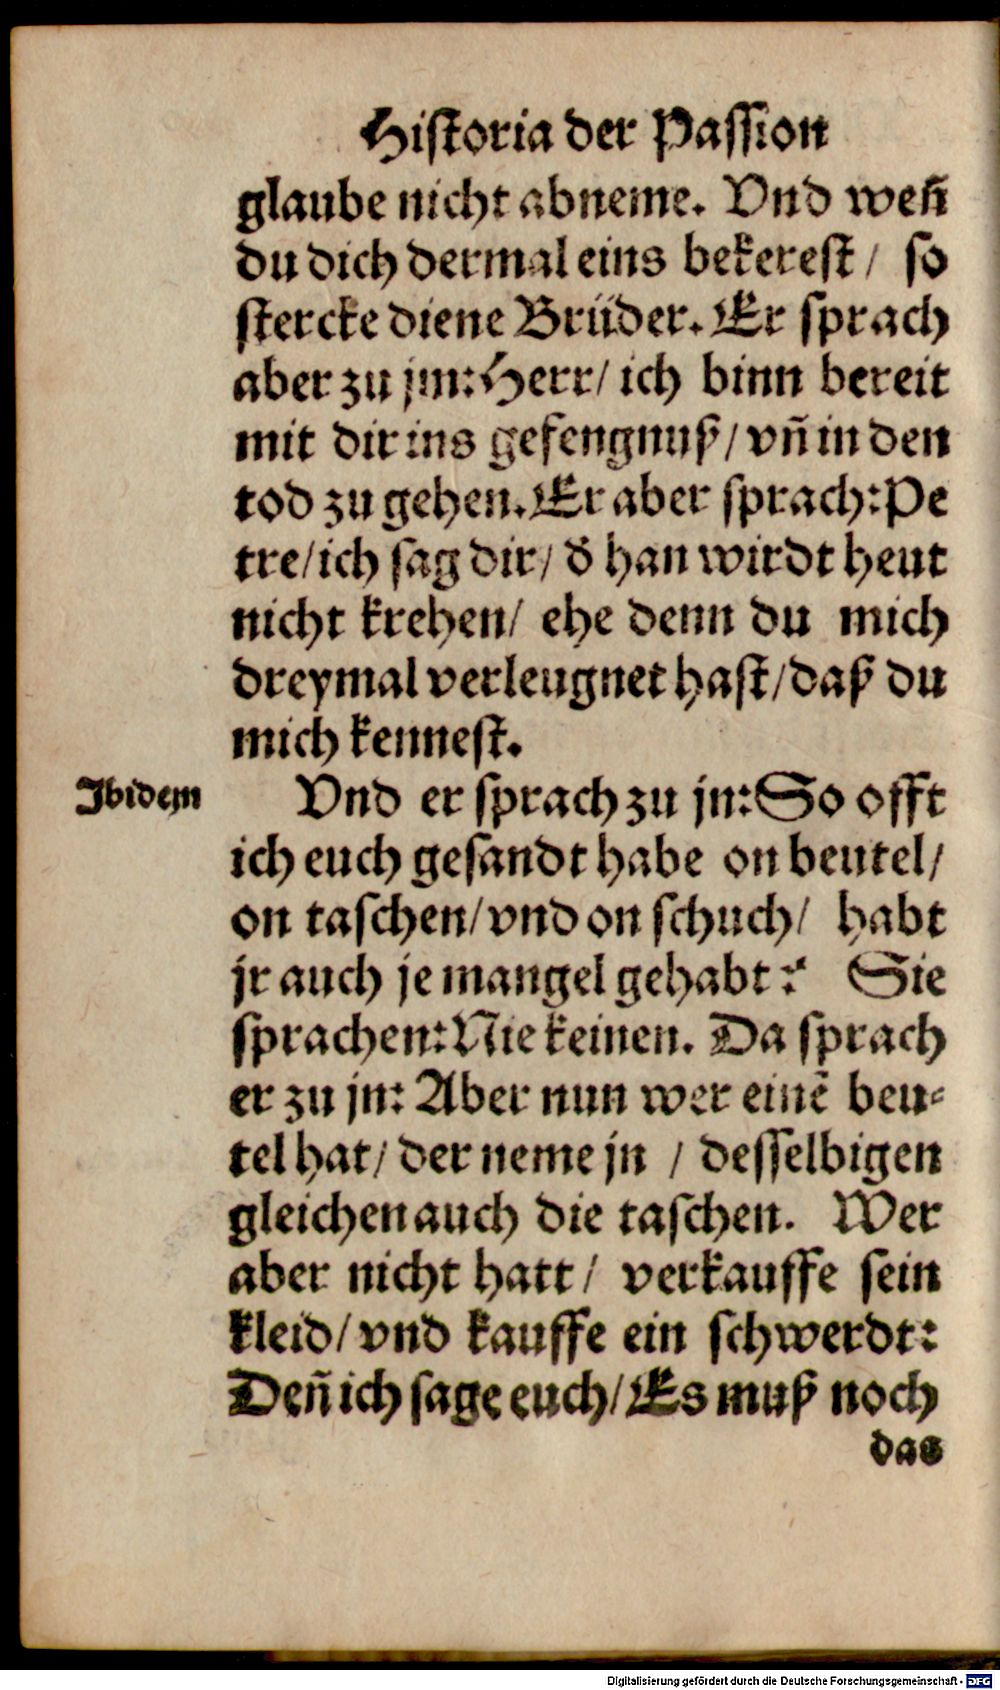 Historia der Passion
glaube nicht abneme. Vnd weñ
du dich dermal eins bekerest / so
stercke diene Brüder. Er sprach
aber zu jm: Herr / ich binn bereit
mit dir ins gefengnuß / vñ in den
tod zu gehen. Er aber sprach: Pe
tre / ich sag dir / d̄ han wirdt heut
nicht krehen / ehe denn du mich
dreymal verleugnet hast / daß du
mich kennest.
Ibidem
Vnd er sprach zu jn: So offt
ich euch gesandt habe on beutel /
on taschen / vnd on schuch / habt
jr auch je mangel gehabt? Sie
sprachen: Nie keinen. Da sprach
er zu jn: Aber nun wer einē beu-
tel hat / der neme jn / desselbigen
gleichen auch die taschen. Wer
aber nicht hatt / verkauffe sein
kleid / vnd kauffe ein schwerdt:
Deñ ich sage euch / Es muß noch
das
Digitalisierung gefördert durch die Deutsche Forschungsgemeinschaft - DFG